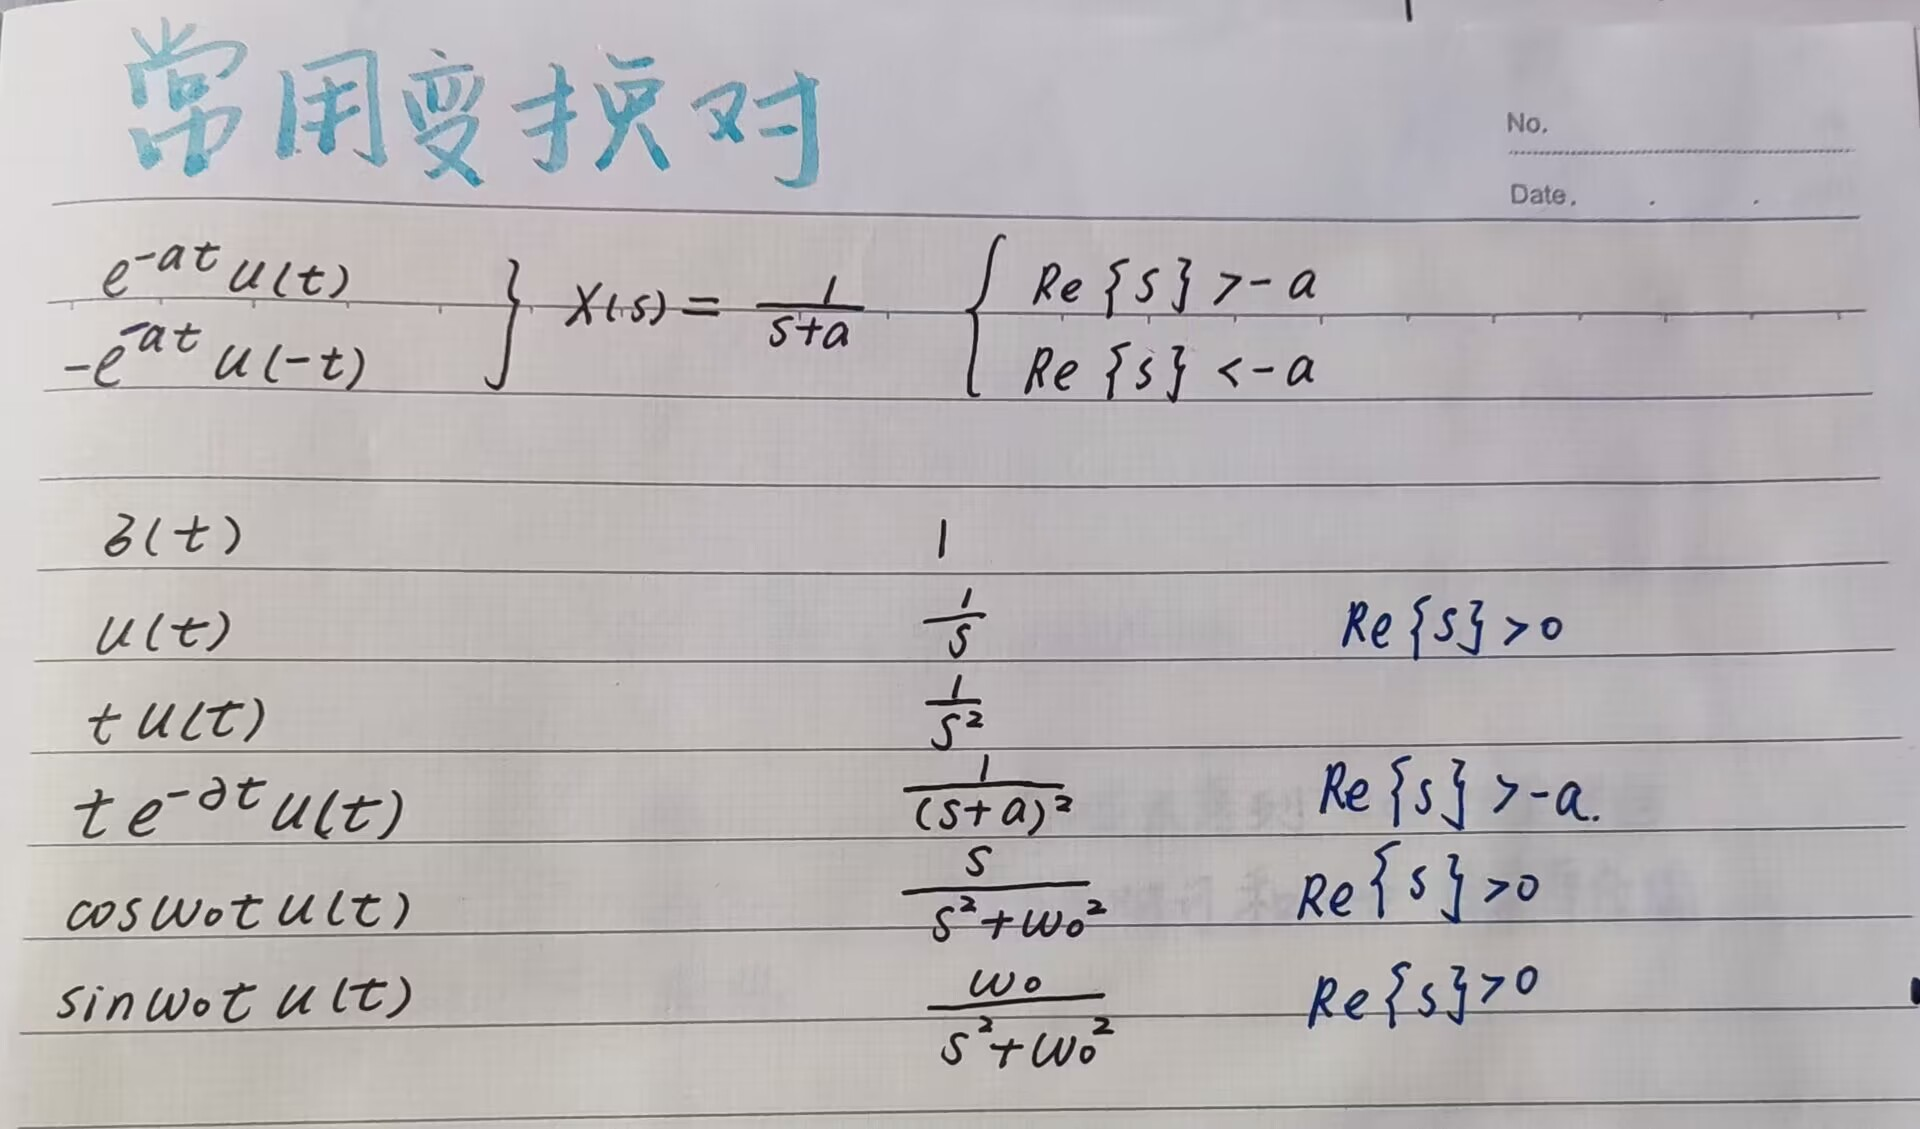 常用变换对
No.
Date. . .
e^{-at} u(t) } X(s) = \frac{1}{s+a} { Re{s} > -a
-e^{-at} u(-t) Re{s} < -a
δ(t) 1
u(t) \frac{1}{s} Re{s} > 0
t u(t) \frac{1}{s^2}
t e^{-at} u(t) \frac{1}{(s+a)^2} Re{s} > -a.
cos ω₀t u(t) \frac{s}{s^2+ω₀^2} Re{s} > 0
sin ω₀t u(t) \frac{ω₀}{s^2+ω₀^2} Re{s} > 0